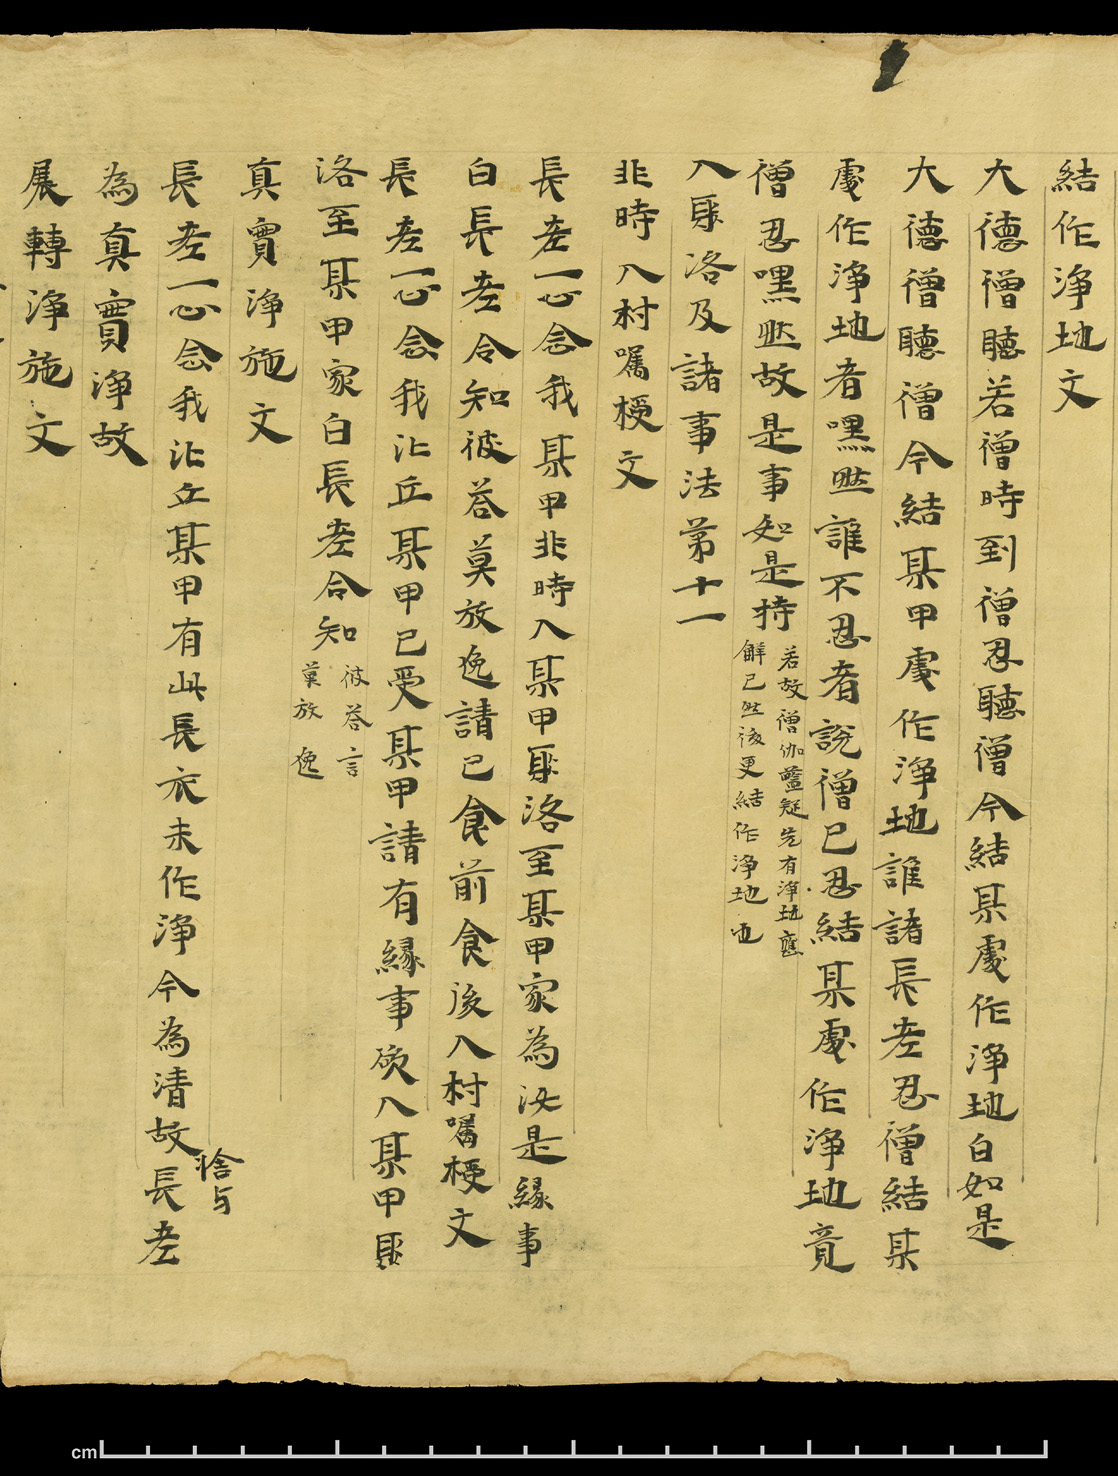 結作淨地文
大德僧聽若僧時到僧忍聽僧今結某處作淨地白如是
大德僧聽僧今結某甲處作淨地誰諸長老忍僧結某
處作淨地者嘿然誰不忍者說僧已忍結某處作淨地竟
僧忍嘿然故是事如是持
若故僧伽藍疑先有淨地應
解已然後更結作淨地也
入聚洛及諸事法第十一
非時入村囑授文
長老一心念我某甲非時入某甲聚洛至某甲家為汝是緣事
白長老令知彼荅莫放逸請已食前食後入村囑授文
長老一心念我比丘某甲已受某甲請有緣事欲入某甲聚
洛至某甲家白長老令知
彼荅言
莫放逸
真實淨施文
長老一心念我比丘某甲有此長衣未作淨今為清故長老
捨与
為真實淨故
展轉淨施文